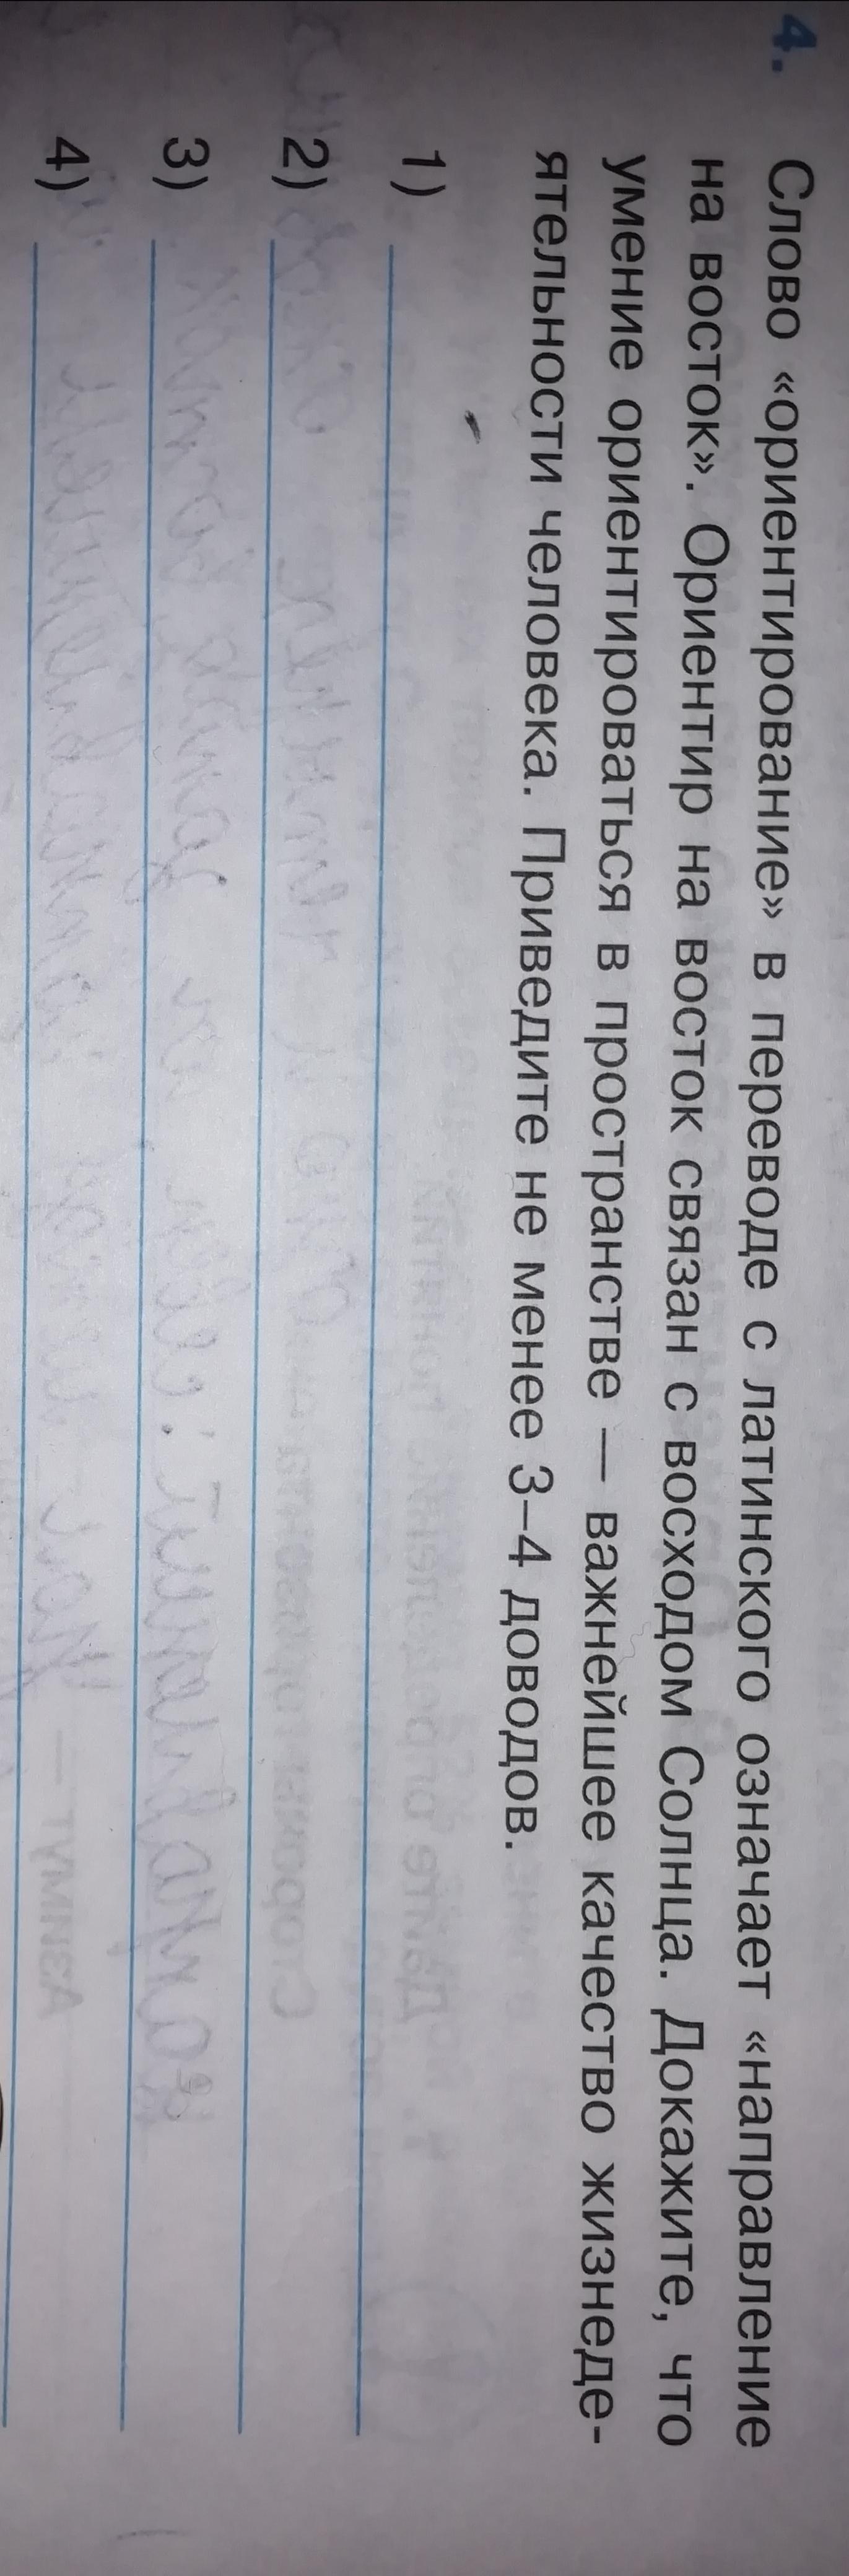 4. Слово «ориентирование» в переводе с латинского означает «направление
на восток». Ориентир на восток связан с восходом Солнца. Докажите, что
умение ориентироваться в пространстве — важнейшее качество жизнеде-
ятельности человека. Приведите не менее 3–4 доводов.
1)
2)
3)
4)